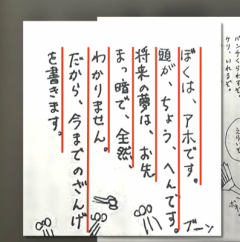 ぼくは、アホです。
頭が、ちょう、へんです。
将来の夢は、お先
まっ暗で、全然、
わかりません。
だから、今までのざんげ
を書きます。
ブーン